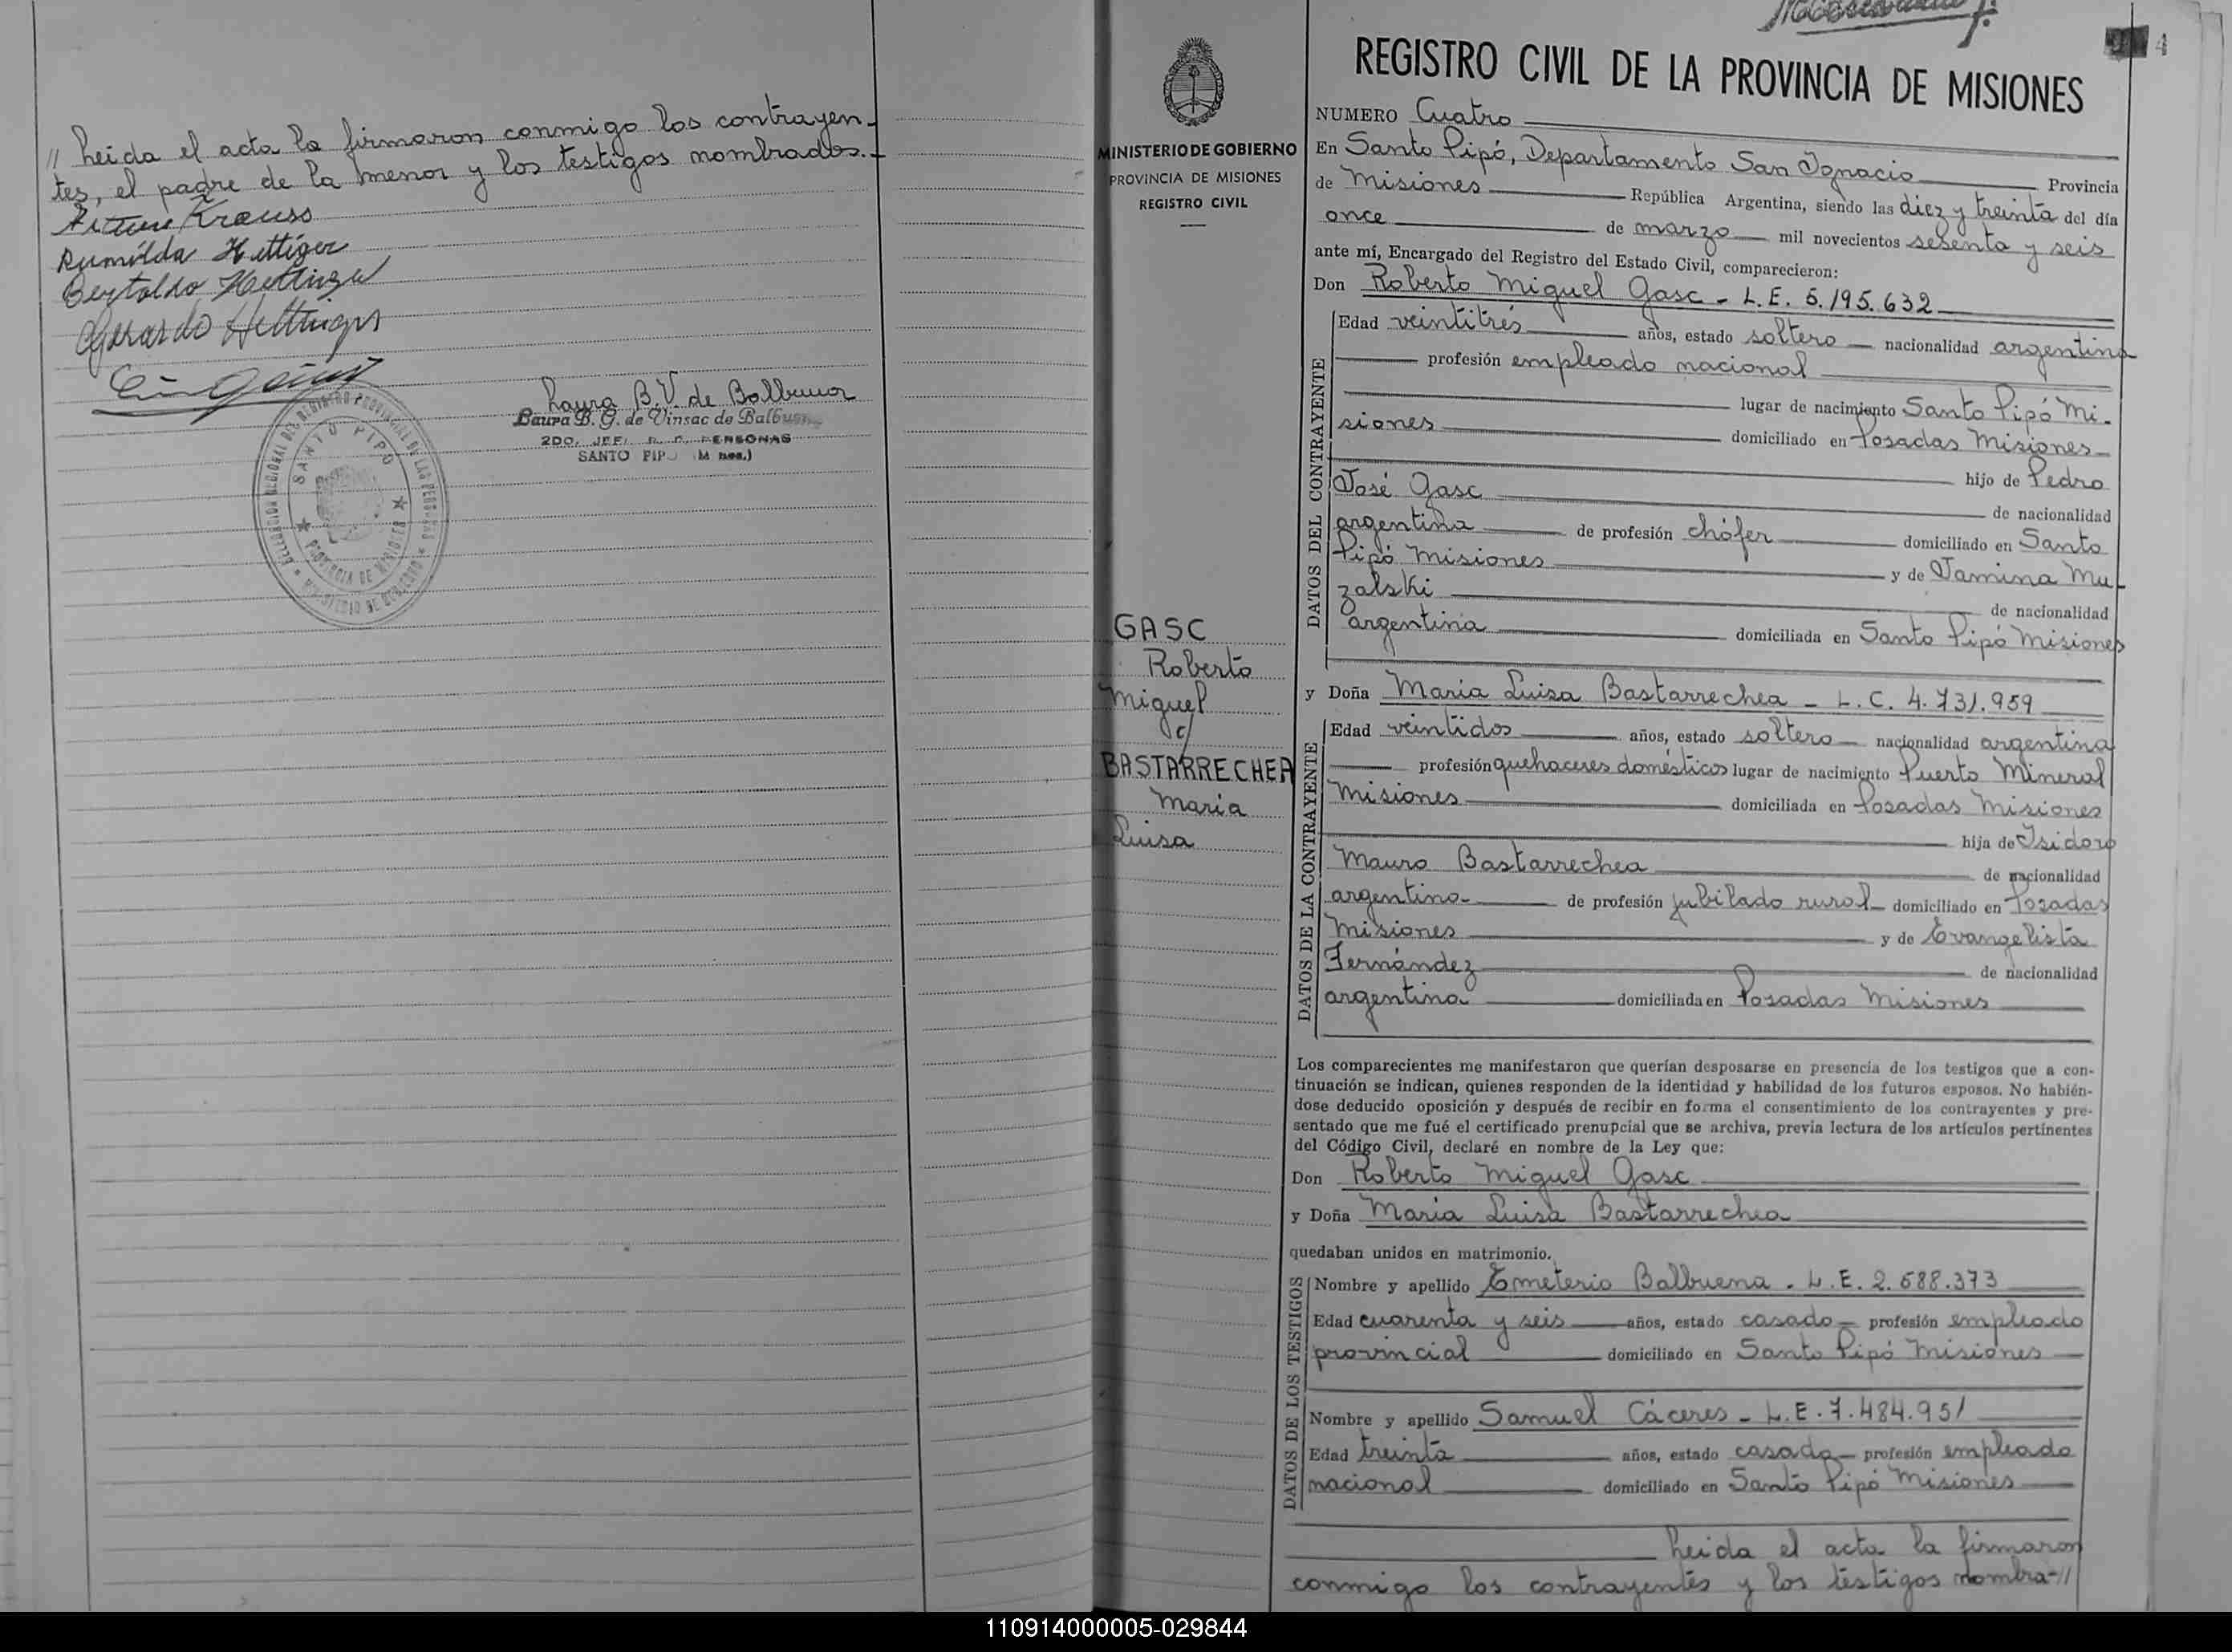 // Leida el acta la firmaron conmigo los contrayen-
tes, el padre de la menor y los testigos nombrados.-
Arturo Krauss
Rumilda Hettiger
Bertoldo Hettinger
Gerardo Hettinger
Laura B. V. de Balbuena
Laura B. G. de Vinsac de Balbuena
2DO. JEFE R. P. PERSONAS
SANTO PIPO (Mnes.)
SANTO PIPO
PROVINCIA DE MISIONES
4
REGISTRO CIVIL DE LA PROVINCIA DE MISIONES
MINISTERIO DE GOBIERNO
PROVINCIA DE MISIONES
REGISTRO CIVIL
GASC
Roberto
Miguel
c/
BASTARRECHEA
Maria
Luisa
NUMERO Cuatro
En Santo Pipó, Departamento San Ignacio Provincia
de Misiones República Argentina, siendo las diez y treinta del día
once de marzo mil novecientos sesenta y seis
ante mí, Encargado del Registro del Estado Civil, comparecieron:
Don Roberto Miguel Gasc - L.E. 5.195.632
DATOS DEL CONTRAYENTE
Edad veintitrés años, estado soltero nacionalidad argentina
profesión empleado nacional
lugar de nacimiento Santo Pipó Mi-
siones domiciliado en Posadas Misiones
hijo de Pedro
José Gasc de nacionalidad
argentina de profesión chófer domiciliado en Santo
Pipó Misiones y de Jamina Mu-
zalski de nacionalidad
argentina domiciliada en Santo Pipó Misiones
y Doña María Luisa Bastarrechea - L.C. 4.731.959
DATOS DE LA CONTRAYENTE
Edad veintidos años, estado soltero nacionalidad argentina
profesión quehaceres domésticos lugar de nacimiento Puerto Mineral
Misiones domiciliada en Posadas Misiones
hija de Isidoro
Mauro Bastarrechea de nacionalidad
argentina de profesión jubilado rural domiciliado en Posadas
Misiones y de Evangelista
Fernández de nacionalidad
argentina domiciliada en Posadas Misiones
Los comparecientes me manifestaron que querían desposarse en presencia de los testigos que a con-
tinuación se indican, quienes responden de la identidad y habilidad de los futuros esposos. No habién-
dose deducido oposición y después de recibir en forma el consentimiento de los contrayentes y pre-
sentado que me fué el certificado prenupcial que se archiva, previa lectura de los artículos pertinentes
del Código Civil, declaré en nombre de la Ley que:
Don Roberto Miguel Gasc
y Doña María Luisa Bastarrechea
quedaban unidos en matrimonio.
DATOS DE LOS TESTIGOS
Nombre y apellido Emeterio Balbuena - L.E. 2.588.373
Edad cuarenta y seis años, estado casado profesión empleado
provincial domiciliado en Santo Pipó Misiones
Nombre y apellido Samuel Cáceres - L.E. 7.484.951
Edad treinta años, estado casado profesión empleado
nacional domiciliado en Santo Pipó Misiones
Leida el acta la firmaron
conmigo los contrayentes y los testigos nombra-//
110914000005-029844